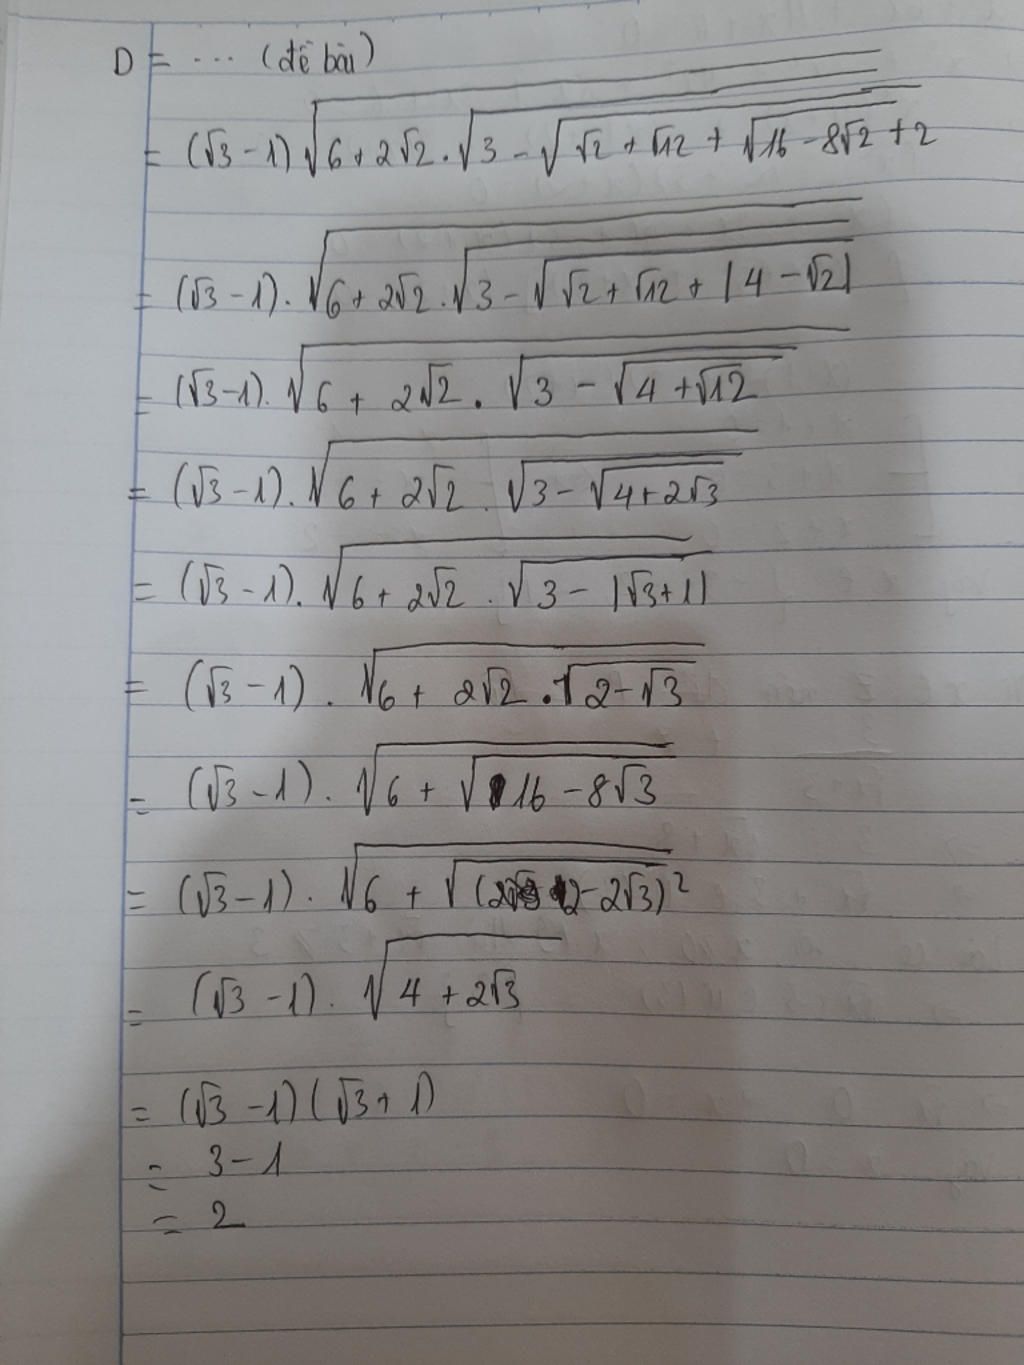 D = ... (đề bài)
= (√3 - 1) √6 + 2√2 . √3 - √√2 + √12 + √16 - 8√2 + 2
= (√3 - 1) . √6 + 2√2 . √3 - √√2 + √12 + |4 - √2|
= (√3 - 1) . √6 + 2√2 . √3 - √4 + √12
= (√3 - 1) . √6 + 2√2 . √3 - √4 + 2√3
= (√3 - 1) . √6 + 2√2 . √3 - |√3 + 1|
= (√3 - 1) . √6 + 2√2 . √2 - √3
= (√3 - 1) . √6 + √16 - 8√3
= (√3 - 1) . √6 + √(2 - 2√3)²
= (√3 - 1) . √4 + 2√3
= (√3 - 1) (√3 + 1)
= 3 - 1
= 2